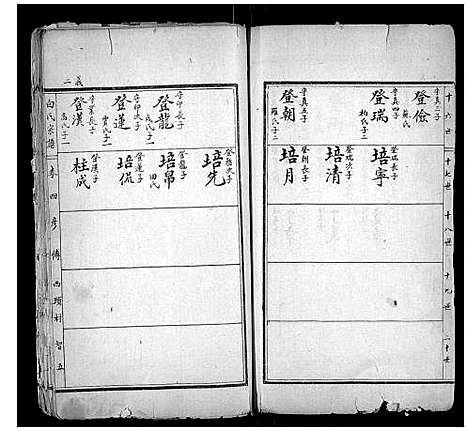 十六世
十七世
十八世
十九世
二十世
守真三子
登儉
蘇氏
守真四子
登瑞
柏氏子二
守真五子
登朝
羅氏子二
登瑞長子
培寧
登瑞次子
培清
登朝長子
培月
守印長子
登龍
成氏子二
守印次子
登蓮
賈氏子二
守業長子
登漢
高氏子一
登朝次子
培先
登龍子
培帛
田氏
登蓮子
培侃
登漢子
柱成
義二
白氏宗譜
卷四
彦傅
西頭村
智五